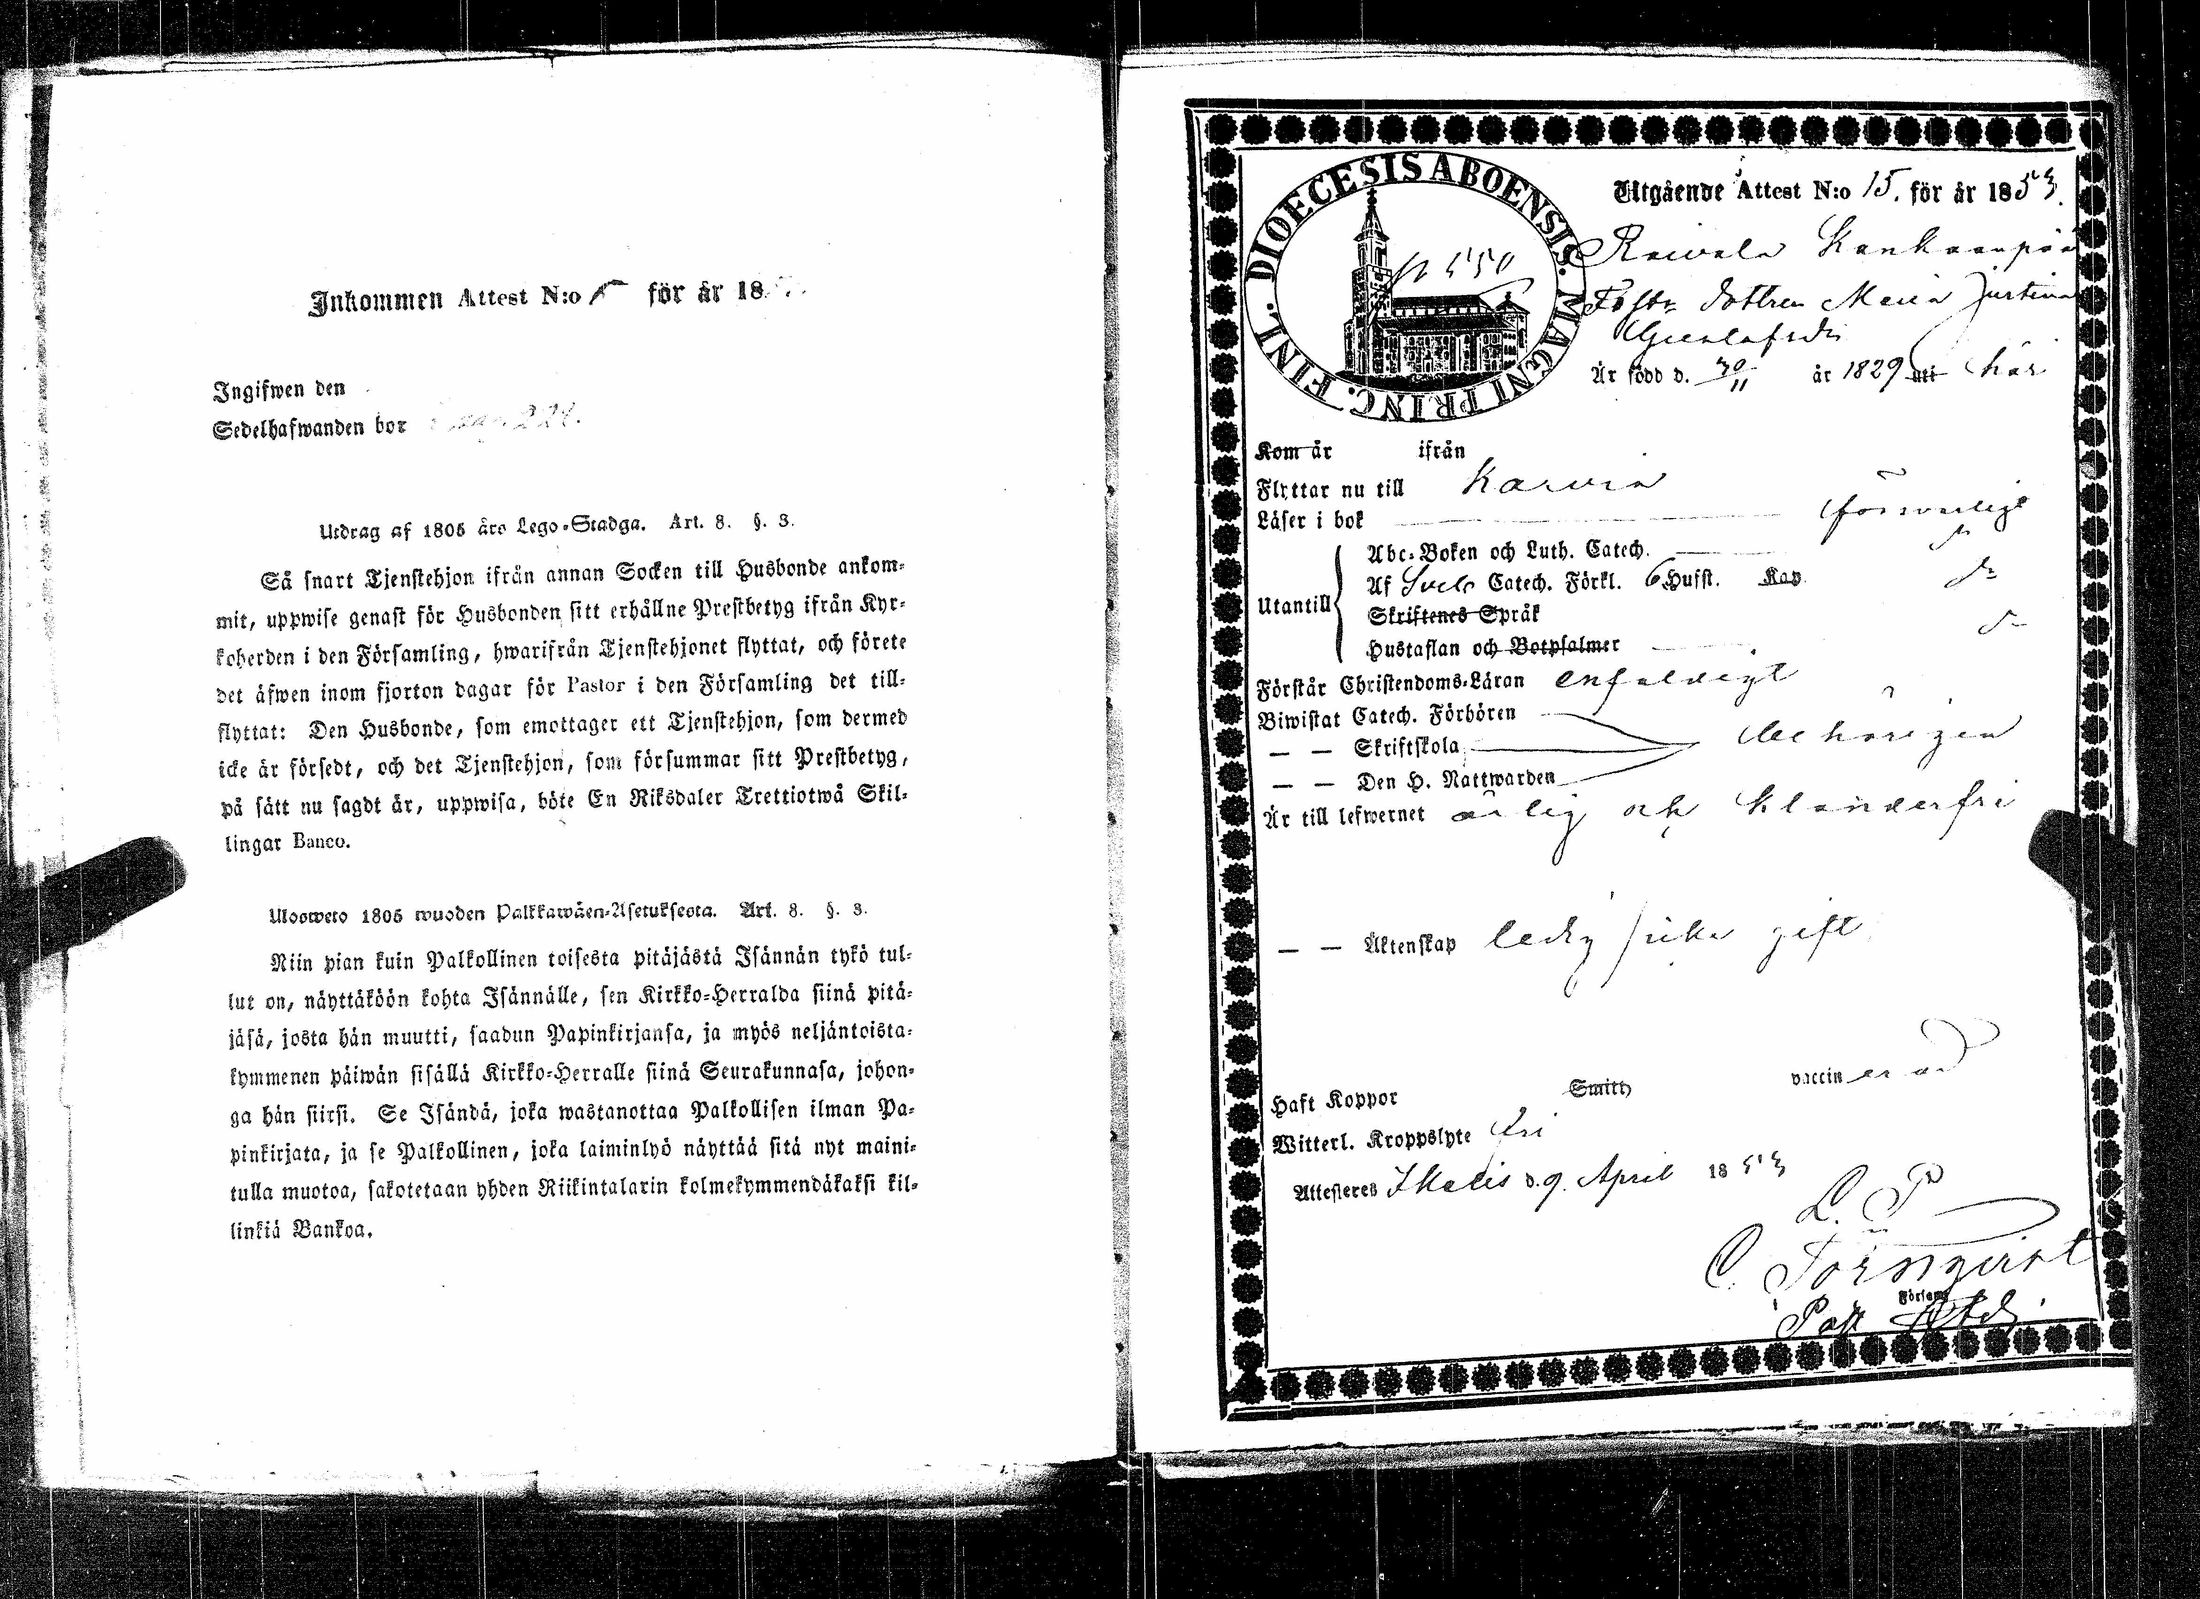 Inkommen Attest N:o 5 för år 18
Ingifwen den
Sedelhafwanden bor pag. 224.
Utdrag af 1805 års Lego-Stadga. Art. 8. §. 3.
Så snart Tjenstehjon ifrån annan Socken till Husbonde ankom-
mit, uppwise genast för Husbonden sitt erhållne Prestbetyg ifrån Kyr-
koherden i den Församling, hwarifrån Tjenstehjonet flyttat, och förete
det äfwen inom fjorton dagar för Pastor i den Församling det till-
flyttat: Den Husbonde, som emottager ett Tjenstehjon, som dermed
icke är försedt, och det Tjenstehjon, som försummar sitt Prestbetyg,
på sätt nu sagdt är, uppwisa, böte En Riksdaler Trettiotwå Skil-
lingar Banco.
Ulosweto 1805 wuoden Palkkawäen-Asetuksesta. Art. 8. §. 3.
Niin pian kuin Palkollinen toisesta pitäjästä Isännän tykö tul-
lut on, näyttäköön kohta Isännälle, sen Kirkko-Herralda siinä pitä-
jäsä, josta hän muutti, saadun Papinkirjansa, ja myös neljäntoista-
kymmenen päiwän sisällä Kirkko-Herralle siinä Seurakunnasa, johon-
ga hän siirsi. Se Isändä, joka wastanottaa Palkollisen ilman Pa-
pinkirjata, ja se Palkollinen, joka laiminlyö näyttää sitä nyt maini-
tulla muotoa, sakotetaan yhden Riikintalarin kolmekymmendäkaksi kil-
linkiä Bankoa.
DIOECESIS ABOENSIS. MAGNI PRINC. FINL.
p 550
Utgående Attest N:o 15. för år 1853.
Raivala Kankaanpää
dottren Maria Justina
Är född d. 30/11 år 1829 utt här
Kom år ifrån
Flyttar nu till Karvia
Läser i bok försvarligt
Abc-Boken och Luth. Catech. do
Af Sveb Catech. Förkl. 6 Husst. Kap. do
Utantill
Skriftenes Språk
Hustaflan och Botpsalmer do
Förstår Christendoms-Läran enfaldigt
Biwistat Catech. Förhören
— — Skriftskola behörigen
— — Den H. Nattwarden
Är till lefwernet ärlig och klanderfri
— — Äktenskap ledig icke gift
Haft Koppor Smitt vaccinerad
Witterl. Kroppslyte fri
Attesteras Ikalis d. 9. April 1853
L. P
C. Törnqvist
Församl.
Past